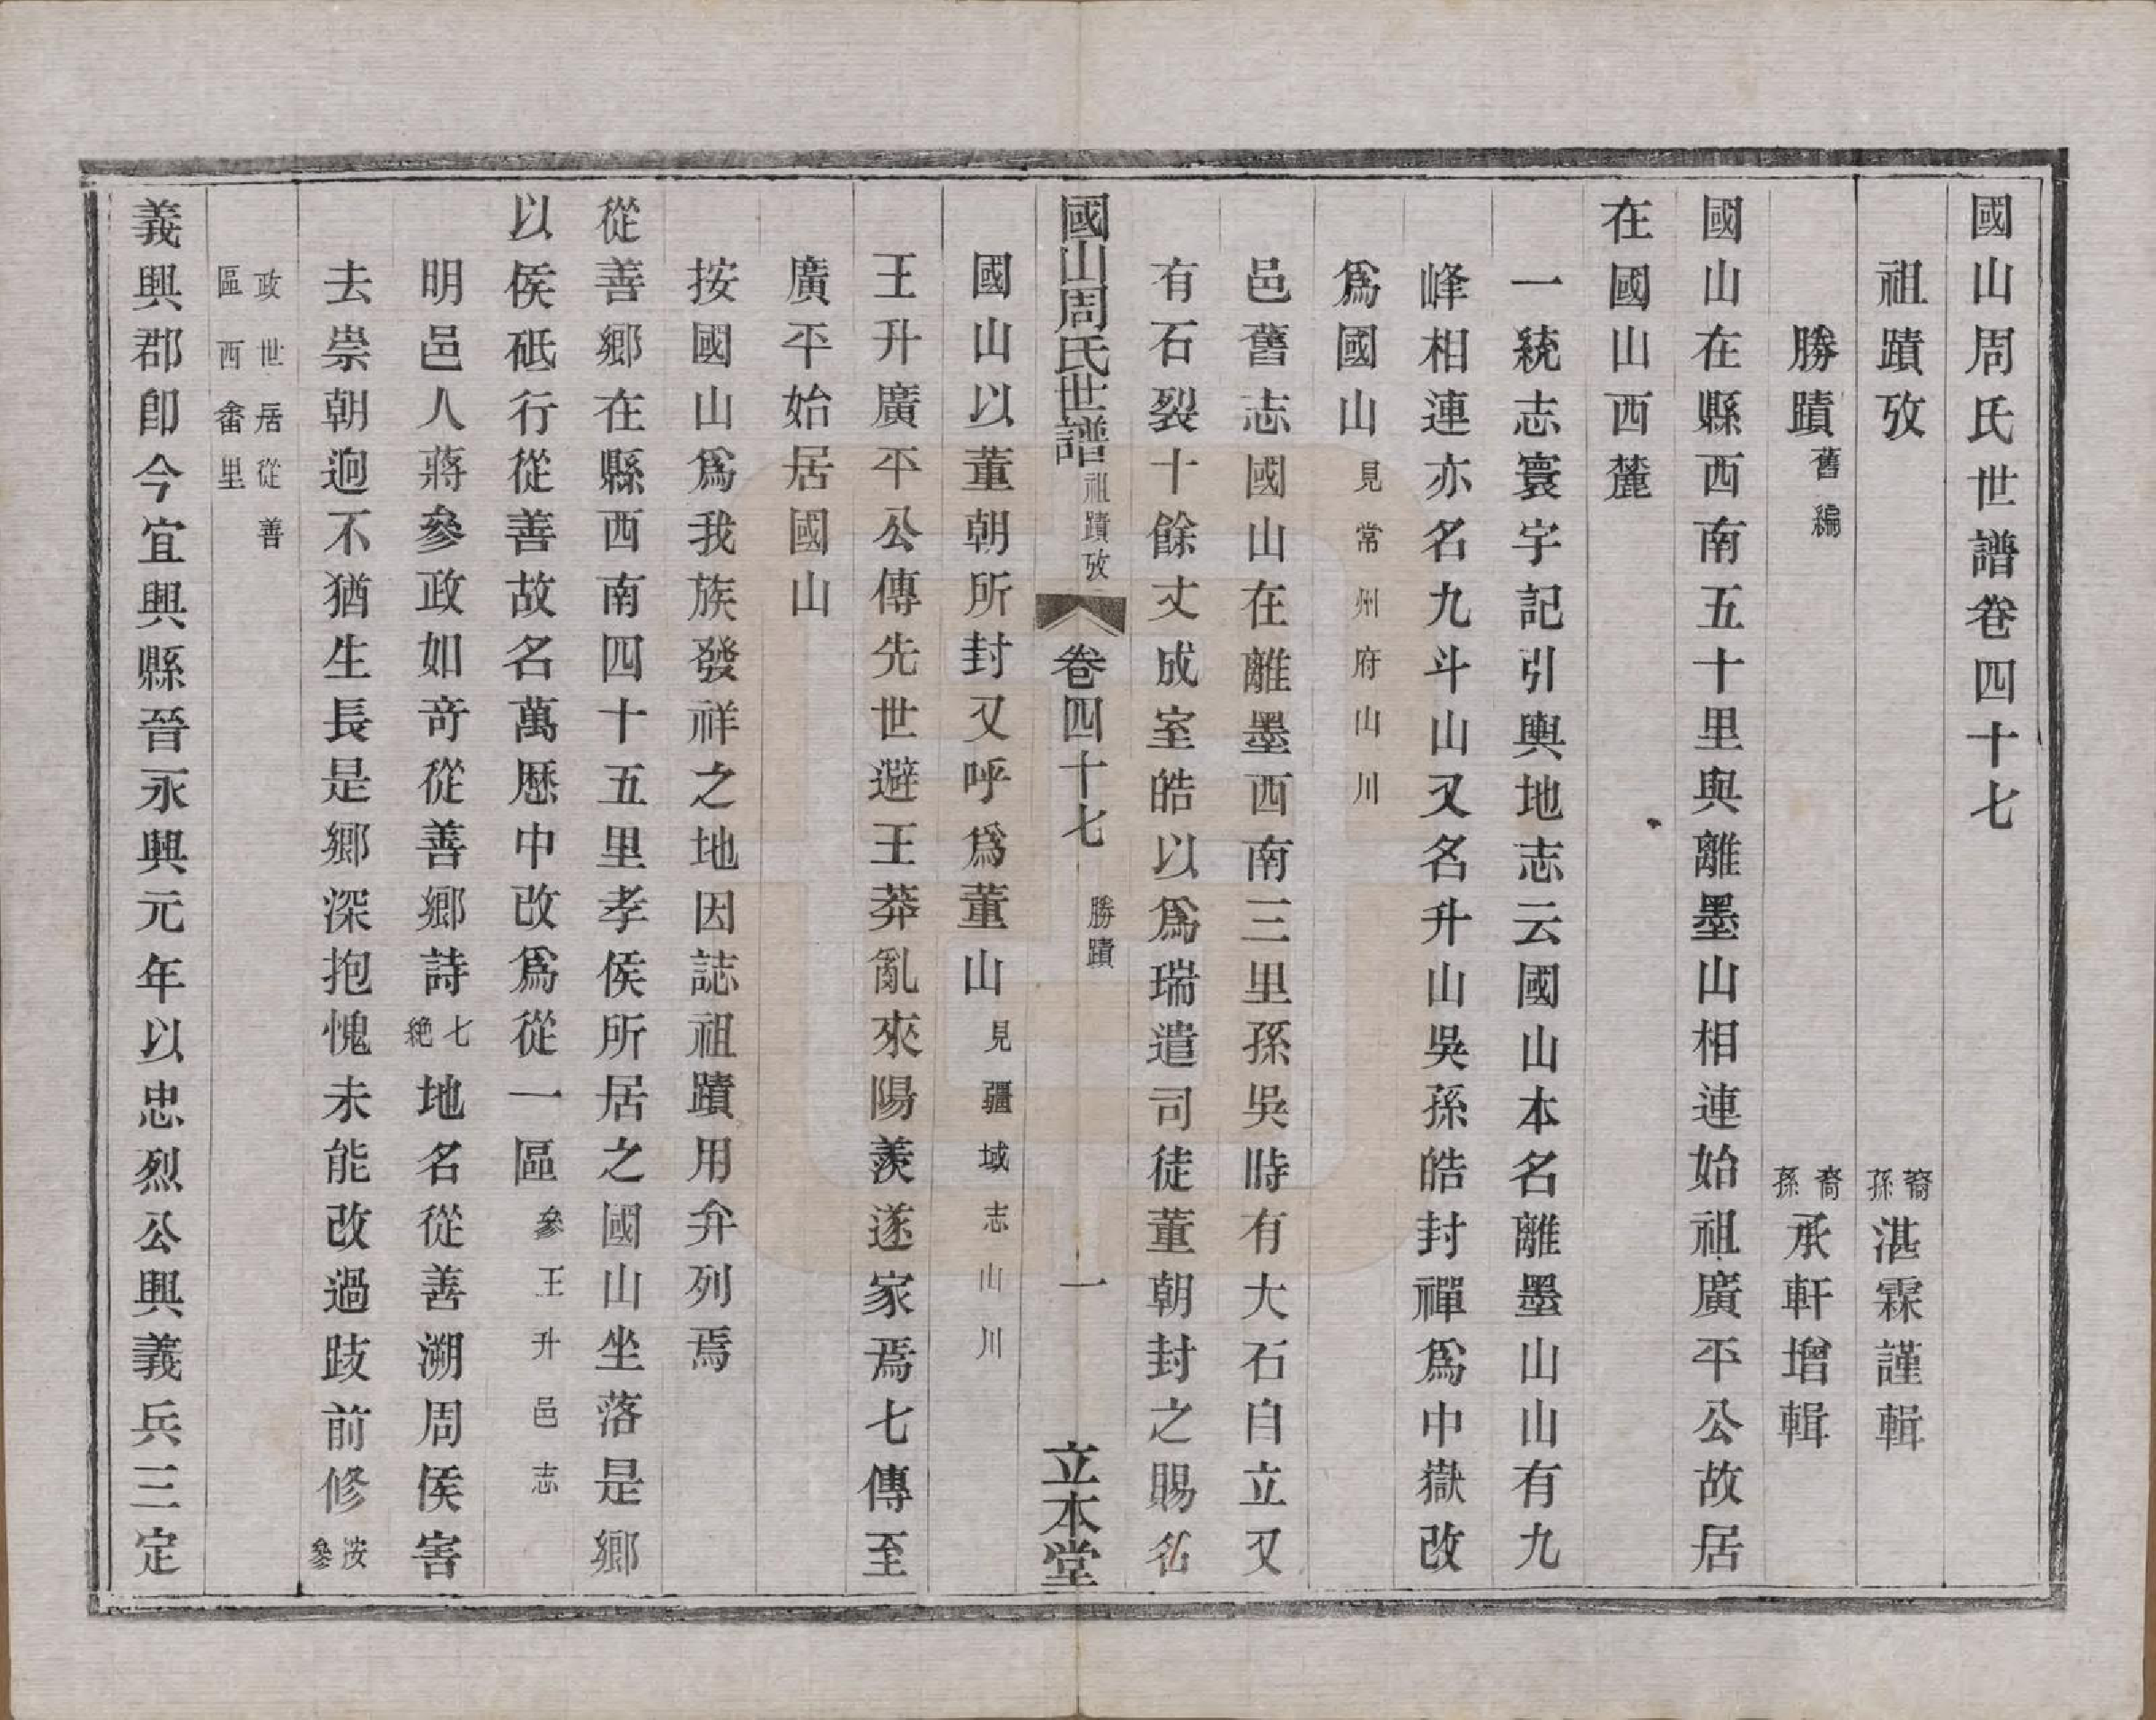 國山周氏世譜卷四十七
祖蹟攷 裔孫湛霖謹輯
勝蹟舊編 裔孫承軒增輯
國山在縣西南五十里與離墨山相連始祖廣平公故居
在國山西麓
一統志寰宇記引輿地志云國山本名離墨山山有九
峰相連亦名九斗山又名升山吳孫皓封禪爲中嶽改
爲國山見常州府山川
邑舊志國山在離墨西南三里孫吳時有大石自立又
有石裂十餘丈成室皓以爲瑞遣司徒董朝封之賜名
國山周氏世譜 祖蹟攷 卷四十七 勝蹟 一 立本堂
國山以董朝所封又呼爲董山見疆域志山川
王升廣平公傳先世避王莽亂來陽羨遂家焉七傳至
廣平始居國山
按國山爲我族發祥之地因誌祖蹟用弁列焉
從善鄉在縣西南四十五里孝侯所居之國山坐落是鄉
以侯砥行從善故名萬厯中改爲從一區參王升邑志
明邑人蔣參政如奇從善鄉詩七絶地名從善溯周侯害
去崇朝迥不猶生長是鄉深抱愧未能改過跂前修按參
政世居從善
區西畬里
義興郡卽今宜興縣晉永興元年以忠烈公興義兵三定